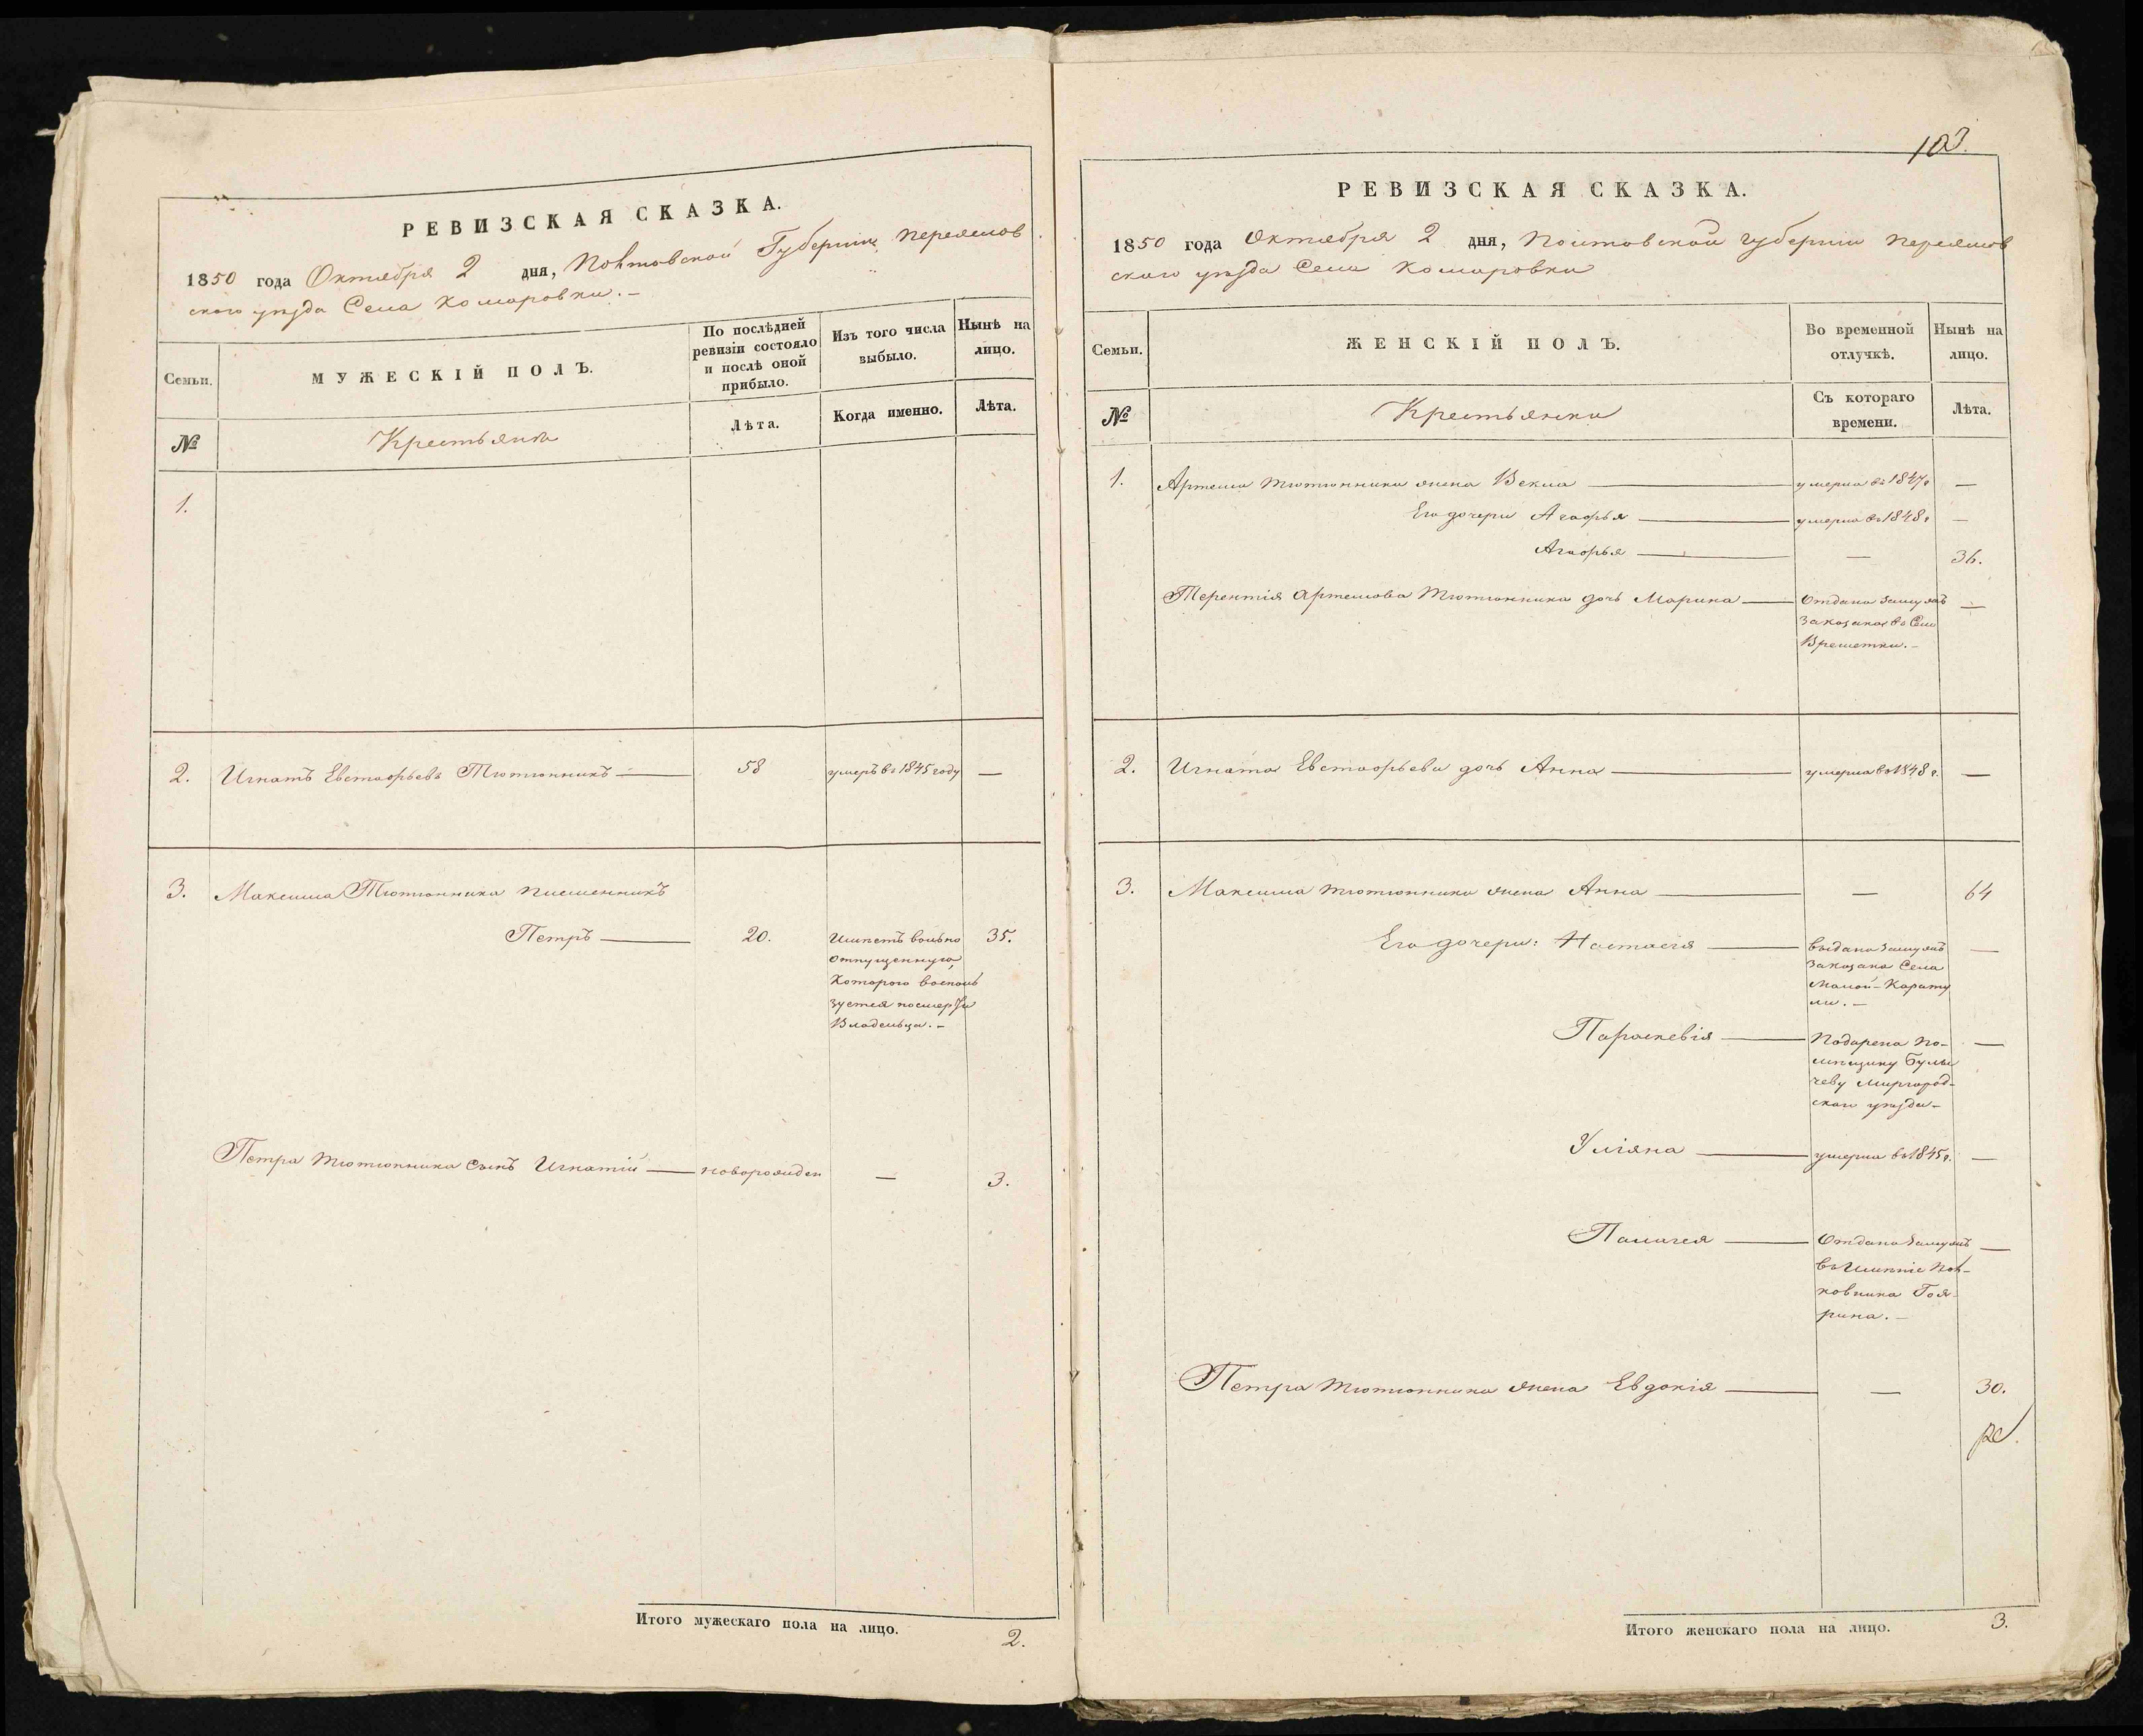 РЕВИЗСКАЯ СКАЗКА.
1850 года Октября 2 дня, Полтавской Губерніи Переяслов
ского уѣзда Села Комаровки. –
Семьи.
МУЖЕСКІЙ ПОЛЪ.
По послѣдней
ревизіи состояло
и послѣ оной
прибыло.
Изъ того числа
выбыло.
Нынѣ на
лицо.
№
Крестьяне
Лѣта.
Когда именно.
Лѣта.
1.
2. Игнатъ Евстафьевъ Тютюнникъ — 58 умеръ въ 1845 году —
3. Максима Тютюнника племенникъ
Петръ — 20. Имѣетъ вольно 35.
отпущенную,
которого восполь
зуется посмерти
Владельца. –
Петра Тютюнника сынъ Игнатій — новорожден — 3.
Итого мужескаго пола на лицо. 2.
103.
РЕВИЗСКАЯ СКАЗКА.
1850 года Октября 2 дня, Полтавской губерніи Переяслов
ского уѣзда Села Комаровки
Семьи.
ЖЕНСКІЙ ПОЛЪ.
Во временной
отлучкѣ.
Нынѣ на
лицо.
№
Крестьянки
Съ котораго
времени.
Лѣта.
1. Артема Тютюнника жена Векла — умерла въ 1847г —
Его дочери Агафья — умерла въ 1848г —
Агафья — — 36.
Терентія Артемова Тютюнника дочь Марина — Отдана замужъ —
За козака въ Село
2. Игната Евстафьева дочь Анна — умерла въ 1848 г. —
3. Максима Тютюнника жена Анна — — 64
Его дочери: Настасія — выдана замужъ —
За козака Села
Малой-Карату
ли. –
Параскевія — Подарена По- —
мѣщику Булю
чеву Миргород-
ского уѣзда –
Уліяна — умерла въ 1845г. —
Палагея — Отдана замужъ —
въ Имѣніе Пол-
ковника Гоя-
рина. –
Петра Тютюнника жена Евдокія — — 30.
Итого женскаго пола на лицо. 3.